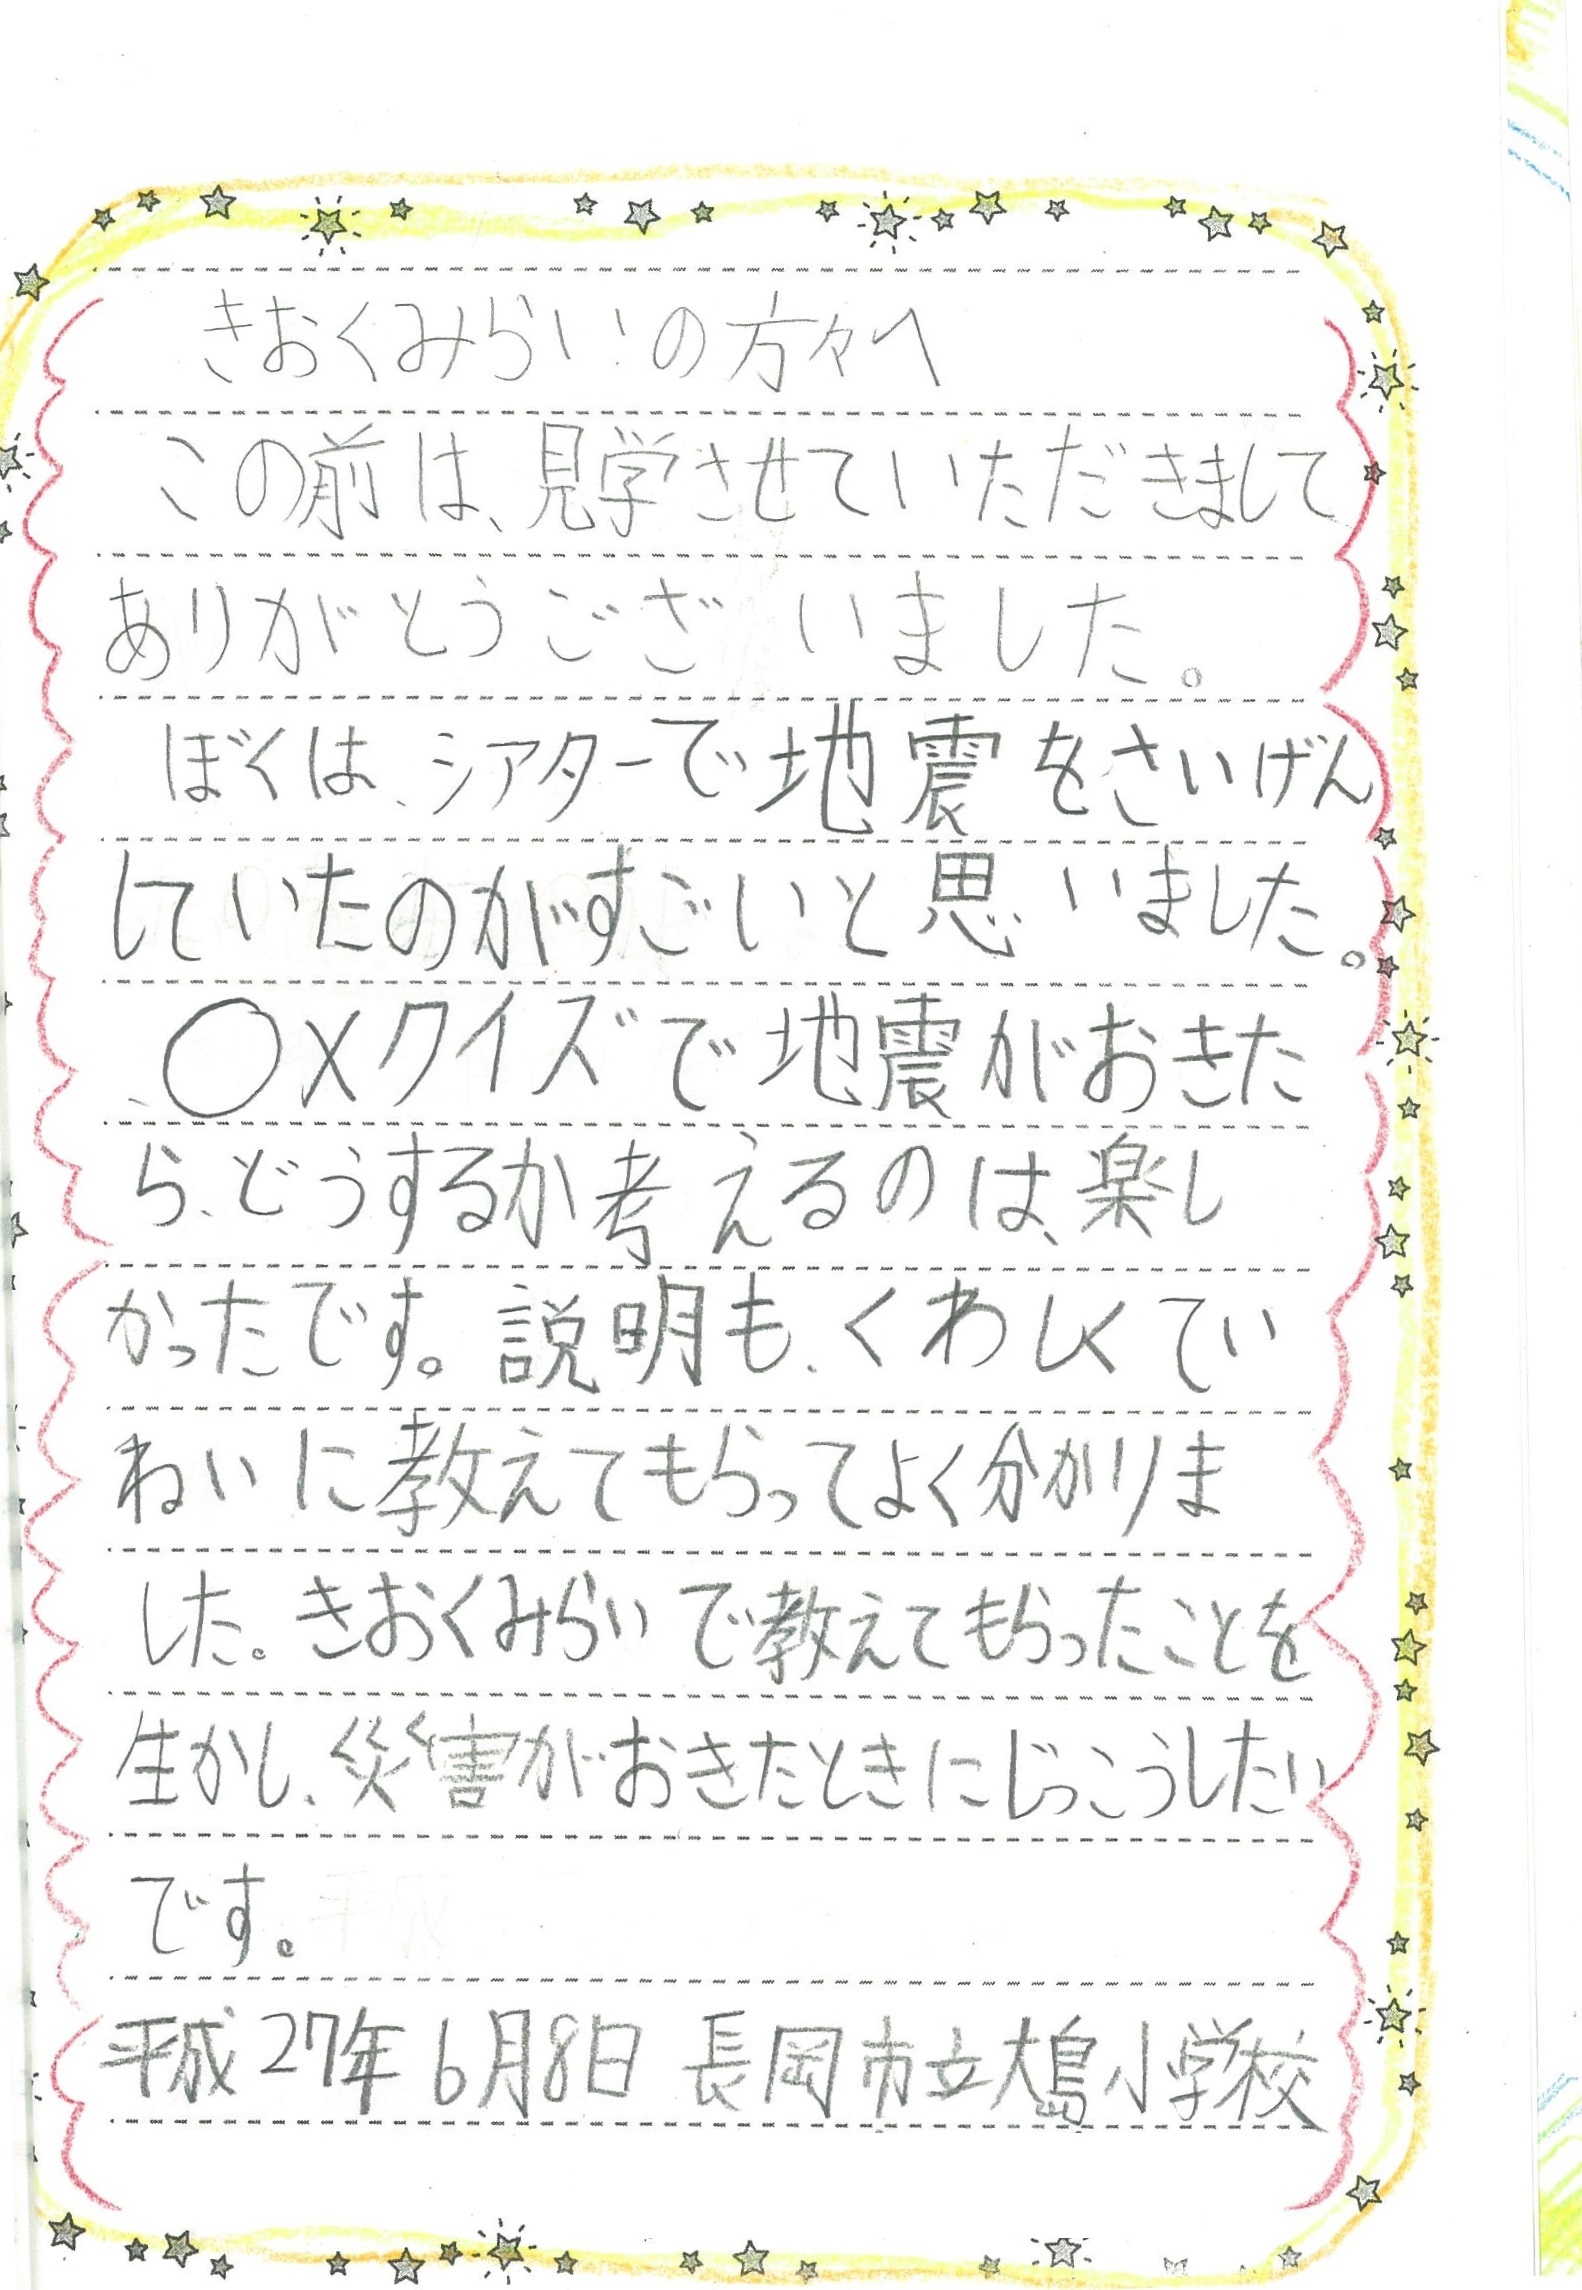 きおくみらいの方々へ
この前は、見学させていただきまして
ありがとうございました。
ぼくは、シアターで地震をさいげん
していたのがすごいと思いました。
○×クイズで地震がおきた
ら、どうするか考えるのは、楽し
かったです。説明も、くわしくてい
ねいに教えてもらってよく分かりま
した。きおくみらいで教えてもらったことを
生かし、災害がおきたときにじっこうしたい
です。
平成27年6月8日 長岡市立大島小学校